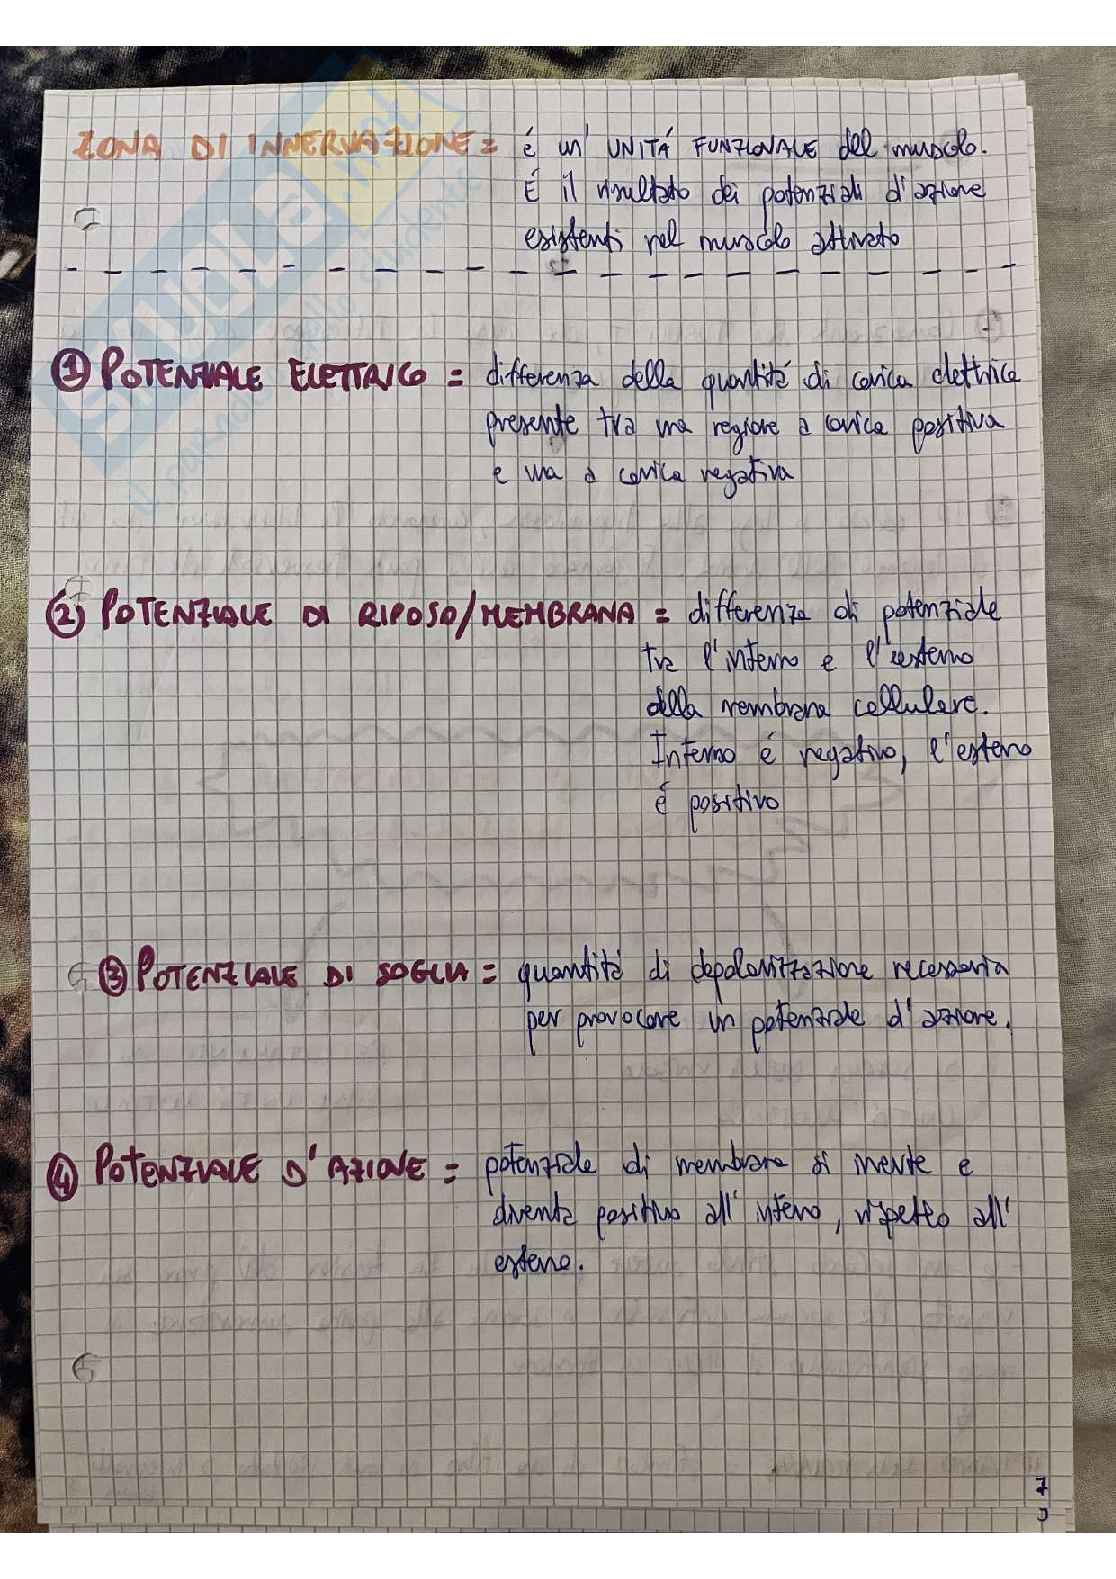 ZONA DI INNERVAZIONE = é un' UNITÁ FUNZIONALE del muscolo.
É il risultato dei potenziali d'azione
esistenti nel muscolo attivato
① POTENZIALE ELETTRICO = differenza della quantitá di carica elettrica
presente tra una regione a carica positiva
e una a carica negativa
② POTENZIALE DI RIPOSO/MEMBRANA = differenza di potenziale
tra l'interno e l'esterno
della membrana cellulare.
Interno é negativo, l'esterno
é positivo
③ POTENZIALE DI SOGLIA = quantitá di depolarizzazione necessaria
per provocare un potenziale d'azione.
④ POTENZIALE D'AZIONE = potenziale di membrana si inverte e
diventa positivo all'interno, rispetto all'
esterno.
7
SKUOLA.net